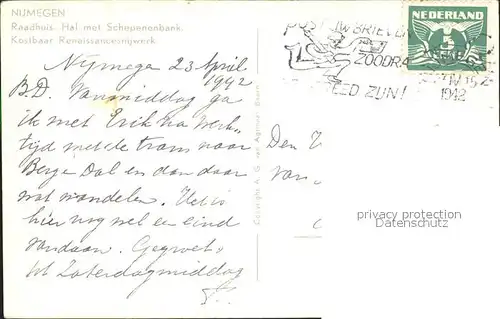 NIJMEGEN
Raadhuis. Hal met Schepenenbank.
Kostbaar Renaissancesnijwerk.
Nijmegen 23 April
1942
B.D. Vanmiddag ga
ik met Erik na werk-
tijd met de tram naar
Berg en Dal en dan daar
wat wandelen. Het is
hier nog wel een eind
vandaan. Gegroet,
tot Zaterdagmiddag
Copyright A. G. van Agtmaal
POST UW BRIEVEN
ZOODRA
ZIJN!
NEDERLAND
5
IV
1942
Den
van
privacy protection
www.delcampe.net